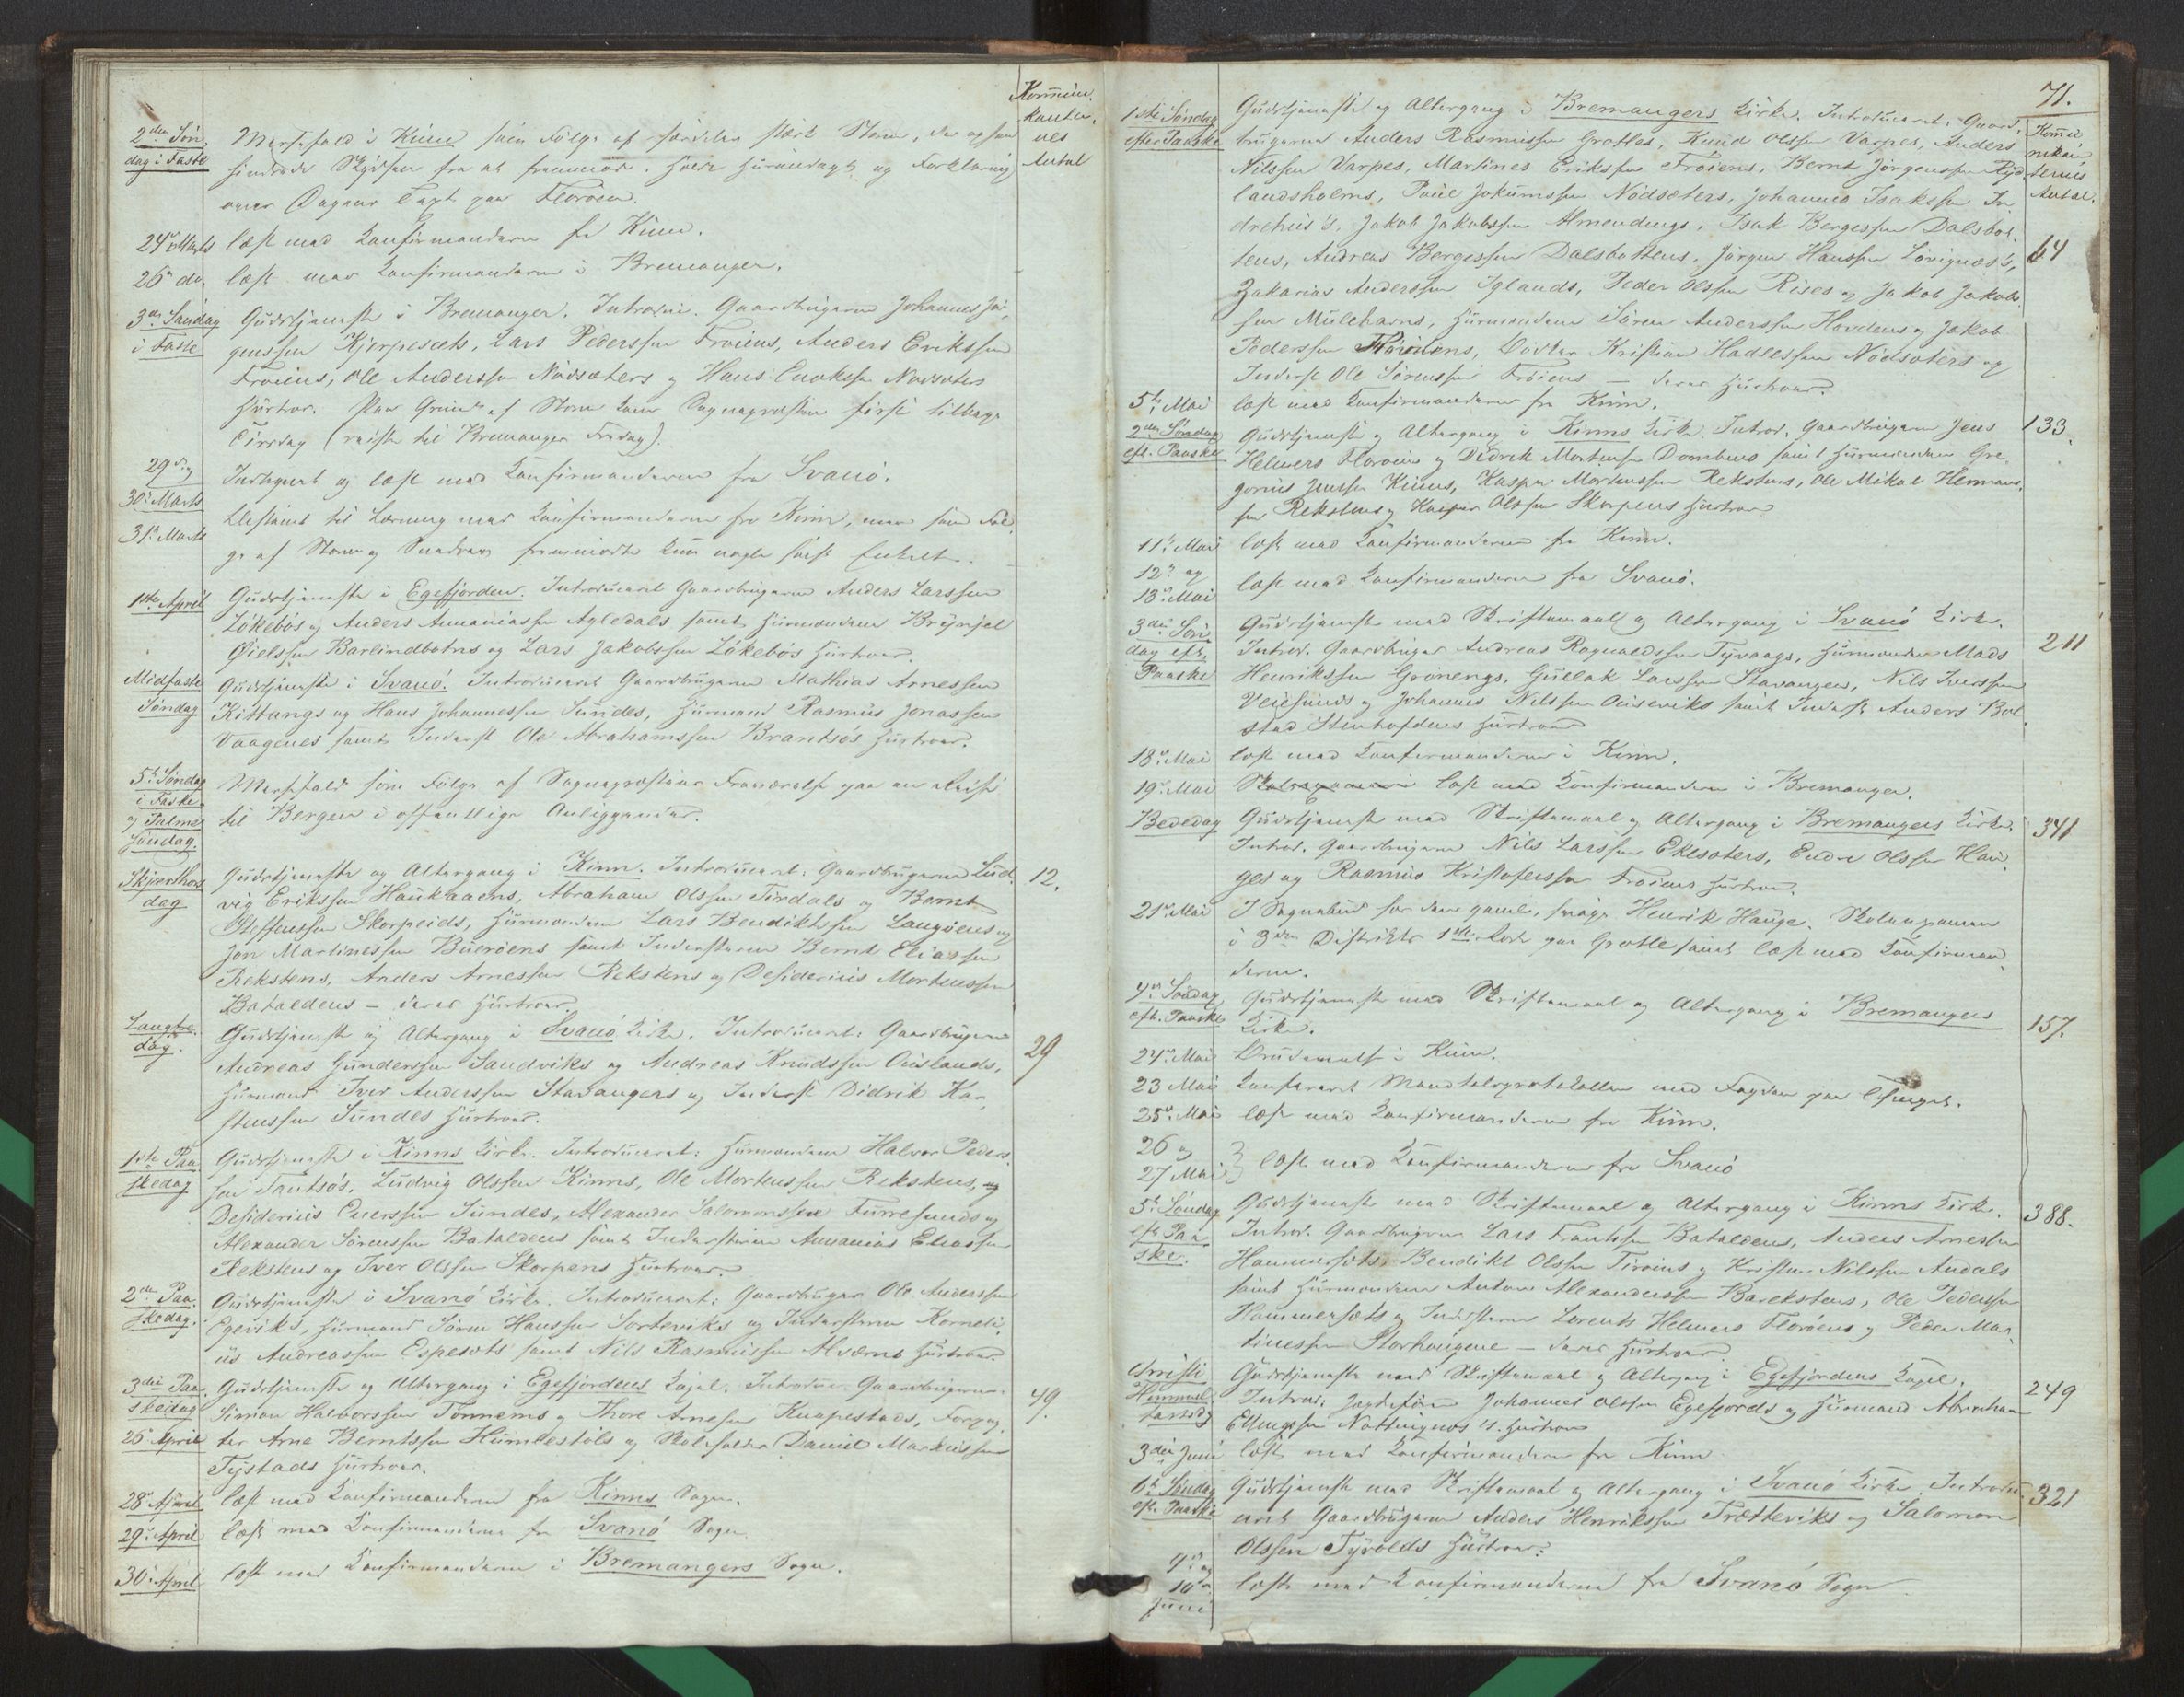 Kommuni-
kanter-
nes
Antal
2den Søn-
dag i Faste
Messefald i Kinn som Følge af særdeles stærk Storm, der ogsaa
hindrede Skydsen fra at fremmøde. Holdt Husandagt og Forklaring
over Dagens Text paa Florøen.
24de Marts
læst med Konfirmanderne fra Kinn.
26de do.
læst med Konfirmanderne i Bremanger.
3die Søndag
i Faste
Gudstjeneste i Bremanger. Introduc. Gaardbrugerne Johannes Jø-
gensen Kjerpesæts, Lars Pederssen Frøiens, Anders Erikssen
Frøiens, Ole Anderssen Nødsæters og Hans Enokssen Nødsæters
Hustroer. Paa Grund af Storm kom Sognepresten først tilbage
Tirsdag (reiste til Bremanger Fredag).
29de og
30te Marts
læst med Konfirmanderne fra Svanø.
31te Marts
bestemt til Læsning med Konfirmanderne fra Kinn, men som Føl-
ge af Storm og Snedrev fremmødte kun nogle faa enkelte.
1ste April
Gudstjeneste i Egefjorden. Introduceret Gaardbrugerne Anders Larssen
Løkebøs og Anders Ananiassen Agledals samt Husmændene Brynjel
Øielssen Barlindbotns og Lars Jakobssen Løkebøs Hustroer.
Midfaste
Søndag
Gudstjeneste i Svanø. Introduceret Gaardbrugerne Mathias Arnessen
Kittangs og Hans Johannessen Sundes, Husmand Rasmus Jonassen
Vaagenes samt Inderst Ole Abrahamssen Brantsøs Hustroer.
5te Søndag
i Faste
og Palme
Søndag.
Messefald som Følge af Sognepræstens Fraværelse paa en Reise
til Bergen i offentlige Anliggender.
Skjærthors
dag
Gudstjeneste og Altergang i Kinn. Introduceret: Gaardbrugerne Lud-
vig Erikssen Haukaaens, Abraham Olssen Tirdals og Bernt
Steffenssen Skorpeids, Husmændene Lars Bendiktssen Langøens og
Jon Martinessen Buerøens samt Inderstene Bernt Eliassen
Rekstens, Anders Arnessen Rekstens og Desiderius Mortenssen
Bataldens – deres Hustroer.
12.
Langfre-
dag.
Gudstjeneste og Altergang i Svanø Kirke. Introduceret: Gaardbrugerne
Andreas Gunderssen Sandviks og Andreas Knudssen Ouslands,
Husmand Iver Anderssen Stavangers og Inderst Didrik Kar-
stenssen Sundes Hustroer.
29
1ste Paa-
skedag
Gudstjeneste i Kinns Kirke. Introduceret: Husmændene Halvor Peders-
sen Tantsøs, Ludvig Olssen Kinns, Ole Mortenssen Rekstens, og
Desiderius Enerssen Sundes, Alexander Salomonssen Furresunds og
Alexander Sørenssen Bataldens samt Inderstene Ananias Eliassen
Rekstens og Iver Olssen Skorpens Hustroer.
2den Paa-
skedag.
Gudstjeneste i Svanø Kirke. Introduceret: Gaardbruger Ole Anderssen
Egeviks, Husmand Søren Hanssen Sorteviks og Inderstene Korneli-
us Andreassen Espesæts samt Nils Rasmussen Alværns Hustroer.
3die Paa-
skedag
Gudstjeneste og Altergang i Egefjordens Kapel. Introduc. Gaardbrugerne
Simon Halvorssen Tonnems og Thore Arnessen Knapestads, Forpag-
ter Arne Berntssen Humlestøls og Skoleholder Daniel Markussen
Tystads Hustroer.
49.
26de April
28de April
læst med Konfirmanderne fra Kinns Sogn.
29de April
læst med Konfirmanderne fra Svanø Sogn.
30te April
læst med Konfirmanderne i Bremangers Sogn.
71.
Kommu-
nikan-
ternes
Antal.
1ste Søndag
efter Paaske
Gudstjeneste og Altergang i Bremangers Kirke. Introduceret: Gaard-
brugerne Anders Rasmussen Grotles, Knud Olssen Varpes, Anders
Nilssen Varpes, Martines Erikssen Frøiens, Bernt Jørgenssen Ryd-
landsholms, Paul Jokumssen Nødsæters, Johannes Isakssen In-
drehus's, Jakob Jakobssen Almendings, Isak Bergessen Dalsbot-
tens, Andreas Bergessen Dalsbottens, Jørgen Hanssen Løvignæs's,
Zakarias Anderssen Iglands, Peder Olssen Rises og Jakob Jakobs-
sen Mulehavns, Husmændene Søren Anderssen Hovdens og Jakob
Pederssen Florøens, Kristian Hadlessen Nødsæters og
Inderst Ole Sørenssen Frøiens – deres Hustroer.
64
5te Mai
læst med Konfirmanderne fra Kinn.
2den Søndag
eft. Paaske
Gudstjeneste og Altergang i Kinns Kirke. Introd. Gaardbrugerne Jens
Helmers Florøens og Didrik Mortenssen Dombens samt Husmændene Gre-
gorius Jenssen Kinns, Kasper Mortenssen Rekstens, Ole Mikal Hermans-
sen Rekstens og Kasper Olssen Skorpens Hustroer
133.
11te Mai
læst med Konfirmanderne fra Kinn.
12te og
13de Mai
læst med Konfirmanderne fra Svanø.
3die Søn-
dag eft.
Paaske
Gudstjeneste med Skriftemaal og Altergang i Svanø Kirke.
Introd. Gaardbruger Andreas Ragnvaldssen Tyvaags, Husmændene Mads
Henrikssen Grønengs, Gullak Larssen Stavangers, Nils Iverssen
Veiesunds og Johannes Nilssen Ouseviks samt Inderst Anders Bol-
stad Stenhofdens Hustroer
211
18de Mai
læst med Konfirmanderne i Kinn.
19de Mai
læst med Konfirmanderne i Bremanger.
Bededag
Gudstjeneste med Skriftemaal og Altergang i Bremangers Kirke.
Introd. Gaardbrugerne Nils Larssen Ekesæters, Endre Olssen Hau-
ges og Rasmus Kristoferssen Frøiens Hustroer.
341
21de Mai
I Sognebud for den gamle, svage Henrik Hauge. Skoleexamen
i 3die Distrikts 1ste Rode paa Grotle samt læst med Konfirman-
derne.
4de Søndag
eft. Paaske
Gudstjeneste med Skriftemaal og Altergang i Bremangers
Kirke.
157.
24de Mai
Brudevielse i Kinn.
23 Mai
Konfereret Mandtalsprotokollen med Fogden paa Thinget.
25de Mai
læst med Konfirmanderne fra Kinn.
26 og
27 Mai
læst med Konfirmanderne fra Svanø
5te Søndag
eft Paa-
ske.
Gudstjeneste med Skriftemaal og Altergang i Kinns Kirke.
Introd. Gaardbrugerne Lars Frantssen Bataldens, Anders Arnessen
Hammersæts, Bendikt Olssen Florøens og Kristen Nilssen Andals
samt Husmændene Anton Alexanderssen Barekstens, Ole Pederssen
Hammersæts og Inderstene Lorents Helmers Florøens og Peder Mar-
tinessen Storhaugene – deres Hustroer.
388.
Christi
Himmel-
fartsdg
Gudstjeneste med Skriftemaal og Altergang i Egefjordens Kapel.
Introd: Jagtefører Johannes Olssen Egefjords og Husmand Abraham
Ellingssen Nattingnæs's Hustroer
249
3die Juni
læst med Konfirmanderne fra Kinn
6te Søndag
eft. Paaske
Gudstjeneste med Skriftemaal og Altergang i Svanø Kirke. Introdu-
ceret Gaardbrugerne Anders Henrikssen Trætteviks og Salomon
Olssen Tyvolds Hustroer.
321
9de og
10de
Juni
læst med Konfirmanderne fra Svanø Sogn